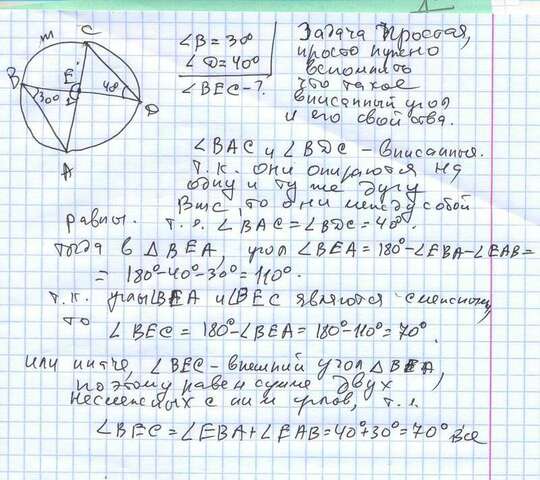 m C
B E D
30° 1 40°
A
∠B = 30°
∠D = 40°
∠BEC - ?
Задача простая,
просто нужно
вспомнить
что такое
вписанный угол
и его свойства.
∠BAC и ∠BDC - вписанные.
т.к. они опираются на
одну и ту же дугу
BmC, то они между собой
равны. т.е. ∠BAC = ∠BDC = 40°.
тогда в △BEA, угол ∠BEA = 180° - ∠EBA - ∠EAB =
= 180° - 40° - 30° = 110°.
т.к. углы ∠BEA и ∠BEC являются смежными,
то ∠BEC = 180° - ∠BEA = 180° - 110° = 70°.
или иначе, ∠BEC - внешний угол △BEA,
поэтому равен сумме двух
несмежных с ним углов, т.е.
∠BEC = ∠EBA + ∠EAB = 40° + 30° = 70° Все